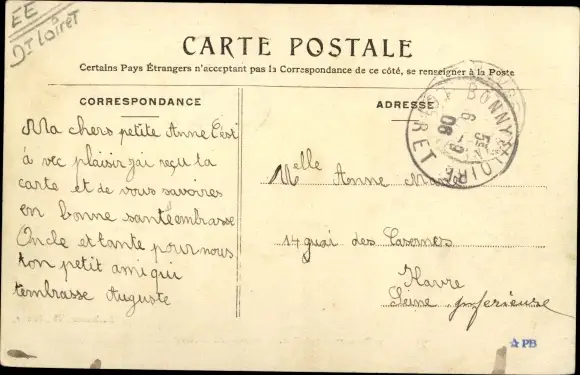 EE
Dt Loiret
CARTE POSTALE
Certains Pays Étrangers n'acceptant pas la Correspondance de ce côté, se renseigner à la Poste
CORRESPONDANCE
Ma chers petite Anne C'est
á vec plaisir jai reçu ta
carte et de vous savoires
en bonne santé embrasse
Oncle et tante pour nous
ton petit ami qui
tembrasse Auguste
ADRESSE
BONNY S. LOIRE
LOIRET
6 -9
06
Melle Anne
14 quai des Casernes
Havre
Seine jnferieure
PB